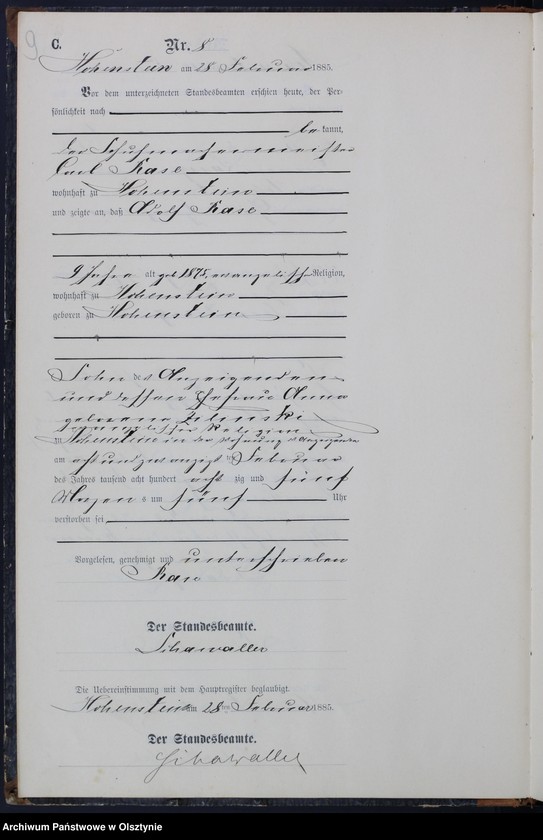 9
C.
Nr. 8
Hohenstein am 28 Februar 1885.
Vor dem unterzeichneten Standesbeamten erschien heute, der Per-
sönlichkeit nach
be kannt,
der Schuhmachermeister
Carl Kase
wohnhaft zu Hohenstein
und zeigte an, daß Adolf Kase
9 Jahre alt geb 1875, evangelischer Religion,
wohnhaft zu Hohenstein
geboren zu Hohenstein
Sohn des Anzeigenden
und dessen Ehefrau Anna
geborene
evangelischer Religion
zu Hohenstein in der Wohnung des Anzeigenden
am acht und zwanzigsten Februar
des Jahres tausend acht hundert acht zig und fünf
Morgens um fünf Uhr
verstorben sei
Vorgelesen, genehmigt und unterschrieben
Kase
Der Standesbeamte.
Schawaller
Die Uebereinstimmung mit dem Hauptregister beglaubigt.
Hohenstein am 28ten Februar 1885.
Der Standesbeamte.
Schawaller
Archiwum Państwowe w Olsztynie